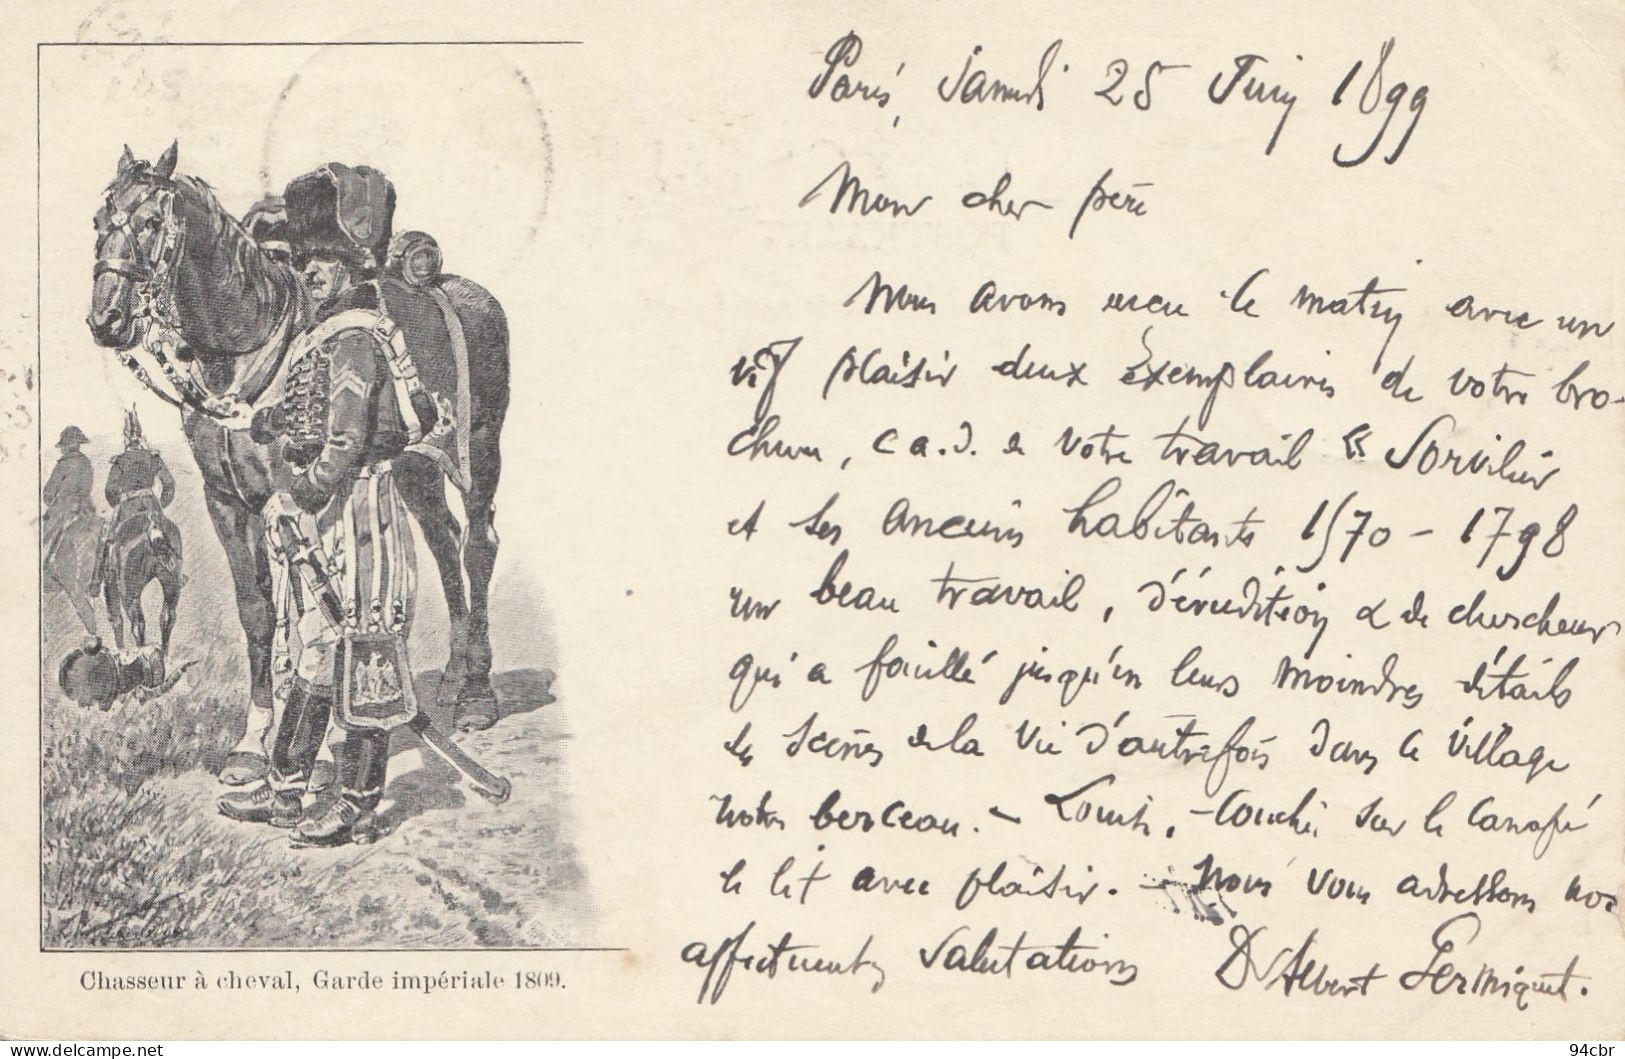 Paris, Samedi 25 Juin 1899
Mon cher père
Nous avons reçu le matin avec un
vif plaisir deux exemplaires de votre bro-
chure, c a. d. de votre travail « Sorvilier
et ses anciens habitants 1570 - 1798
un beau travail, d'érudition & de chercheur
qui a fouillé jusqu'en leurs moindres détails
les scènes de la vie d'autrefois dans le village
notre berceau. - Louis, couché sur le canapé
le lit avec plaisir. - Nous vous adressons nos
affectueuses salutations Dr Albert Germiquet.
Chasseur à cheval, Garde impériale 1809.
94cbr